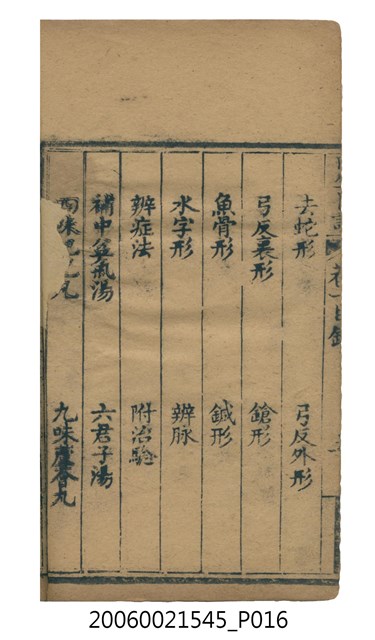 卷一目錄
去蛇形
弓反外形
弓反裏形
鎗形
魚骨形
鍼形
水字形
辨脉
辨症法
附治驗
補中益氣湯
六君子湯
四味肥兒丸
九味蘆薈丸
20060021545_P016